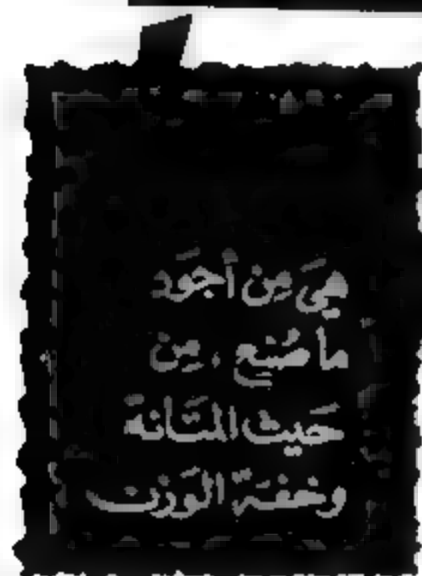 هِيَ مِن أَجوَد
ما صُنِع ، مِن
حَيث المتَانة
وخفّة الوَزن